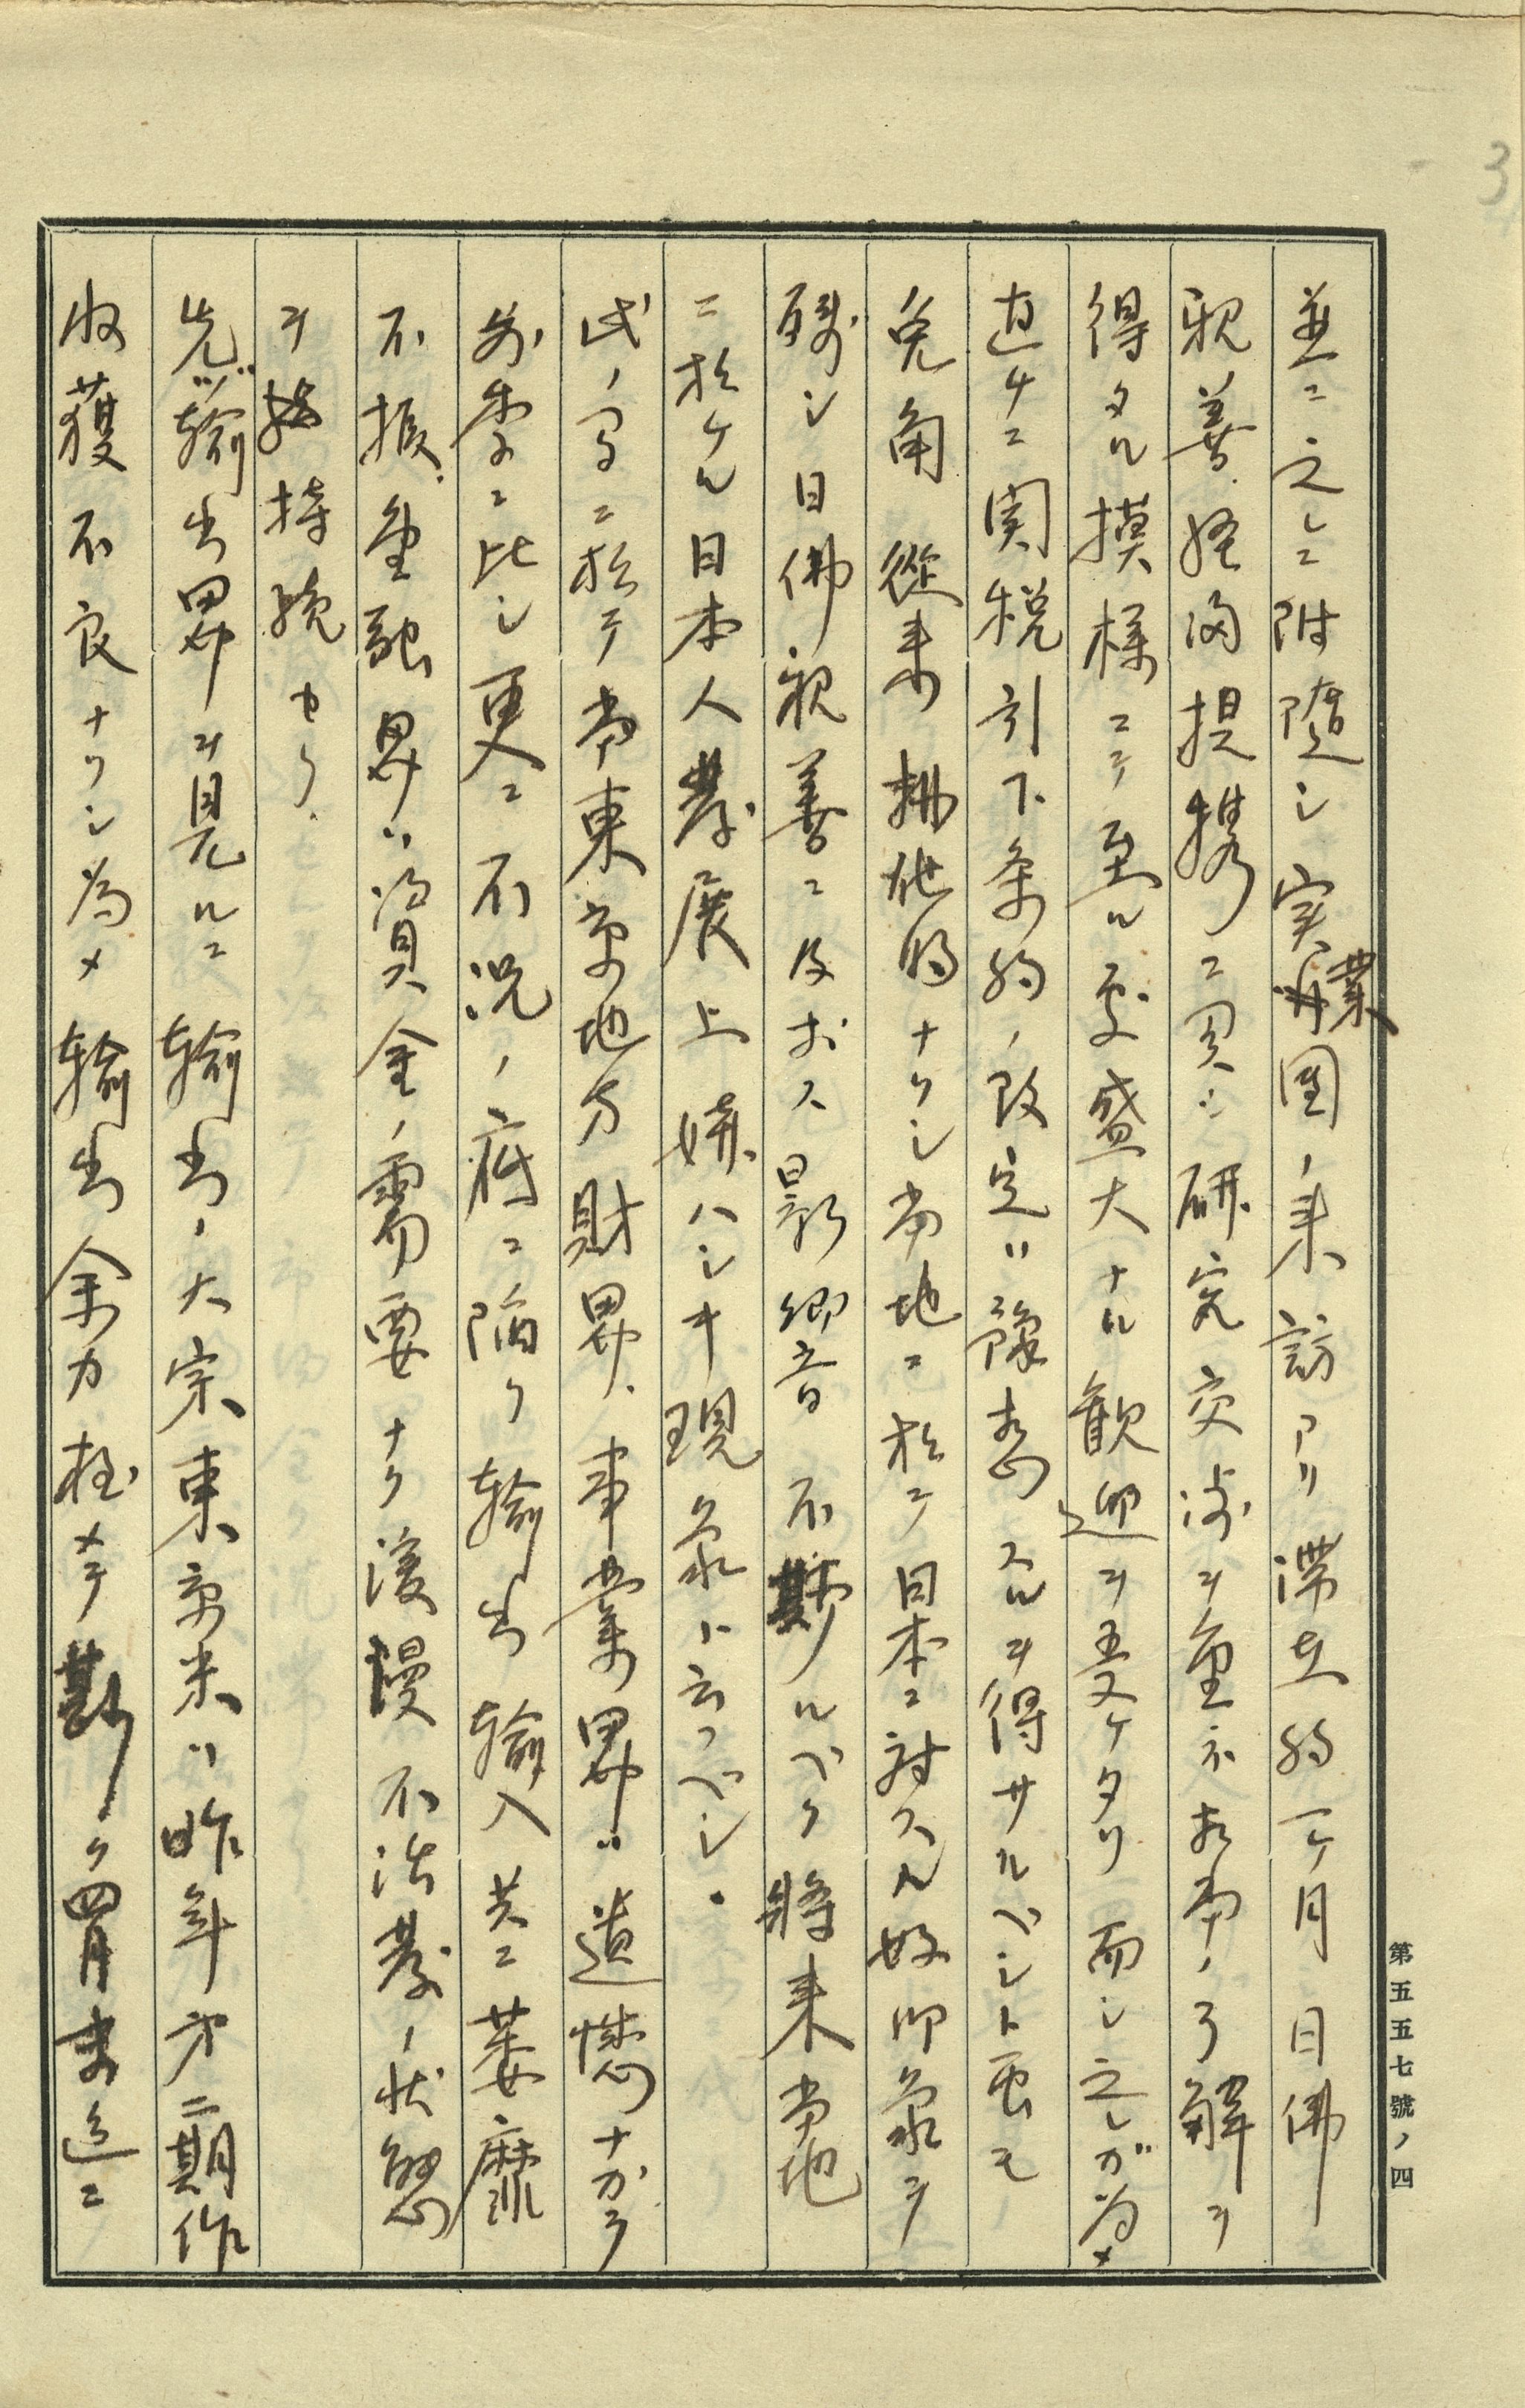 3
第五五七號ノ四
並ニ之レニ附隨シ実業団ノ来訪アリ滞在約一ケ月日佛ノ
親善、経済提携ニ関シ研究交渉ヲ重ネ相當ノ了解ヲ
得タル摸様ニテ至ル処盛大ナル歓迎ヲ受ケタリ而シ之レガ為メ
直チニ関税引下条約ノ改定ハ豫想スルヲ得サルベシト虽モ
兎角從来排他的ナリシ当地ニ於テ日本ニ対スル好印象ヲ
残シ日佛親善ニ及ボス影響不尠ルベク將来当地
ニ於ケル日本人發展上嬉ハシキ現象ト云フベシ.
此ノ間ニ於テ当東京地方財界、事業界ハ遺憾ナガラ
前季ニ比シ更ニ不況ノ底ニ陥リ輸出輸入共ニ萎靡
不振、金融界ハ資金ノ需要ナク緩漫不活發ノ状態
ヲ持続セリ.
先ヅ輸出界ヲ見ルニ輸出ノ大宗東京米ハ昨年第二期作
收獲不良ナリシ為メ輸出余力極メテ尠ク四月末迄ニ